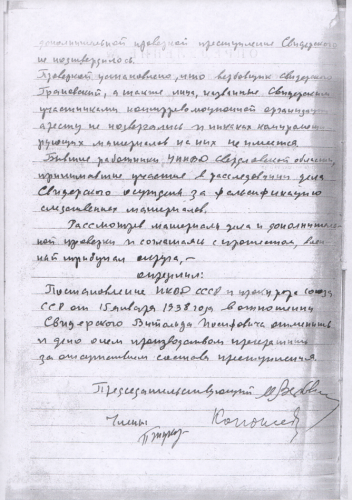 дополнительной проверкой преступление Свидерского
не подтвердилось.
Проверкой установлено, что вербовщик Свидерского
Грановский, а также лица, названные Свидерским
участниками контрреволюционной организации
аресту не подвергались и никаких компромети-
рующих материалов на них не имеется
Бывшие работники УНКВД Свердловской области,
принимавшие участие в расследовании дела
Свидерского осуждены за фальсификацию
следственных материалов.
Рассмотрев материалы дела и дополнитель-
ной проверки и соглашаясь с протестом, воен-
ный трибунал округа, –
определил:
Постановление НКВД СССР и прокурора союза
ССР от 15 января 1938 года в отношении
Свидерского Витольда Иосифовича отменить
и дело о нем производством прекратить
за отсутствием состава преступления.
Председательствующий
Члены